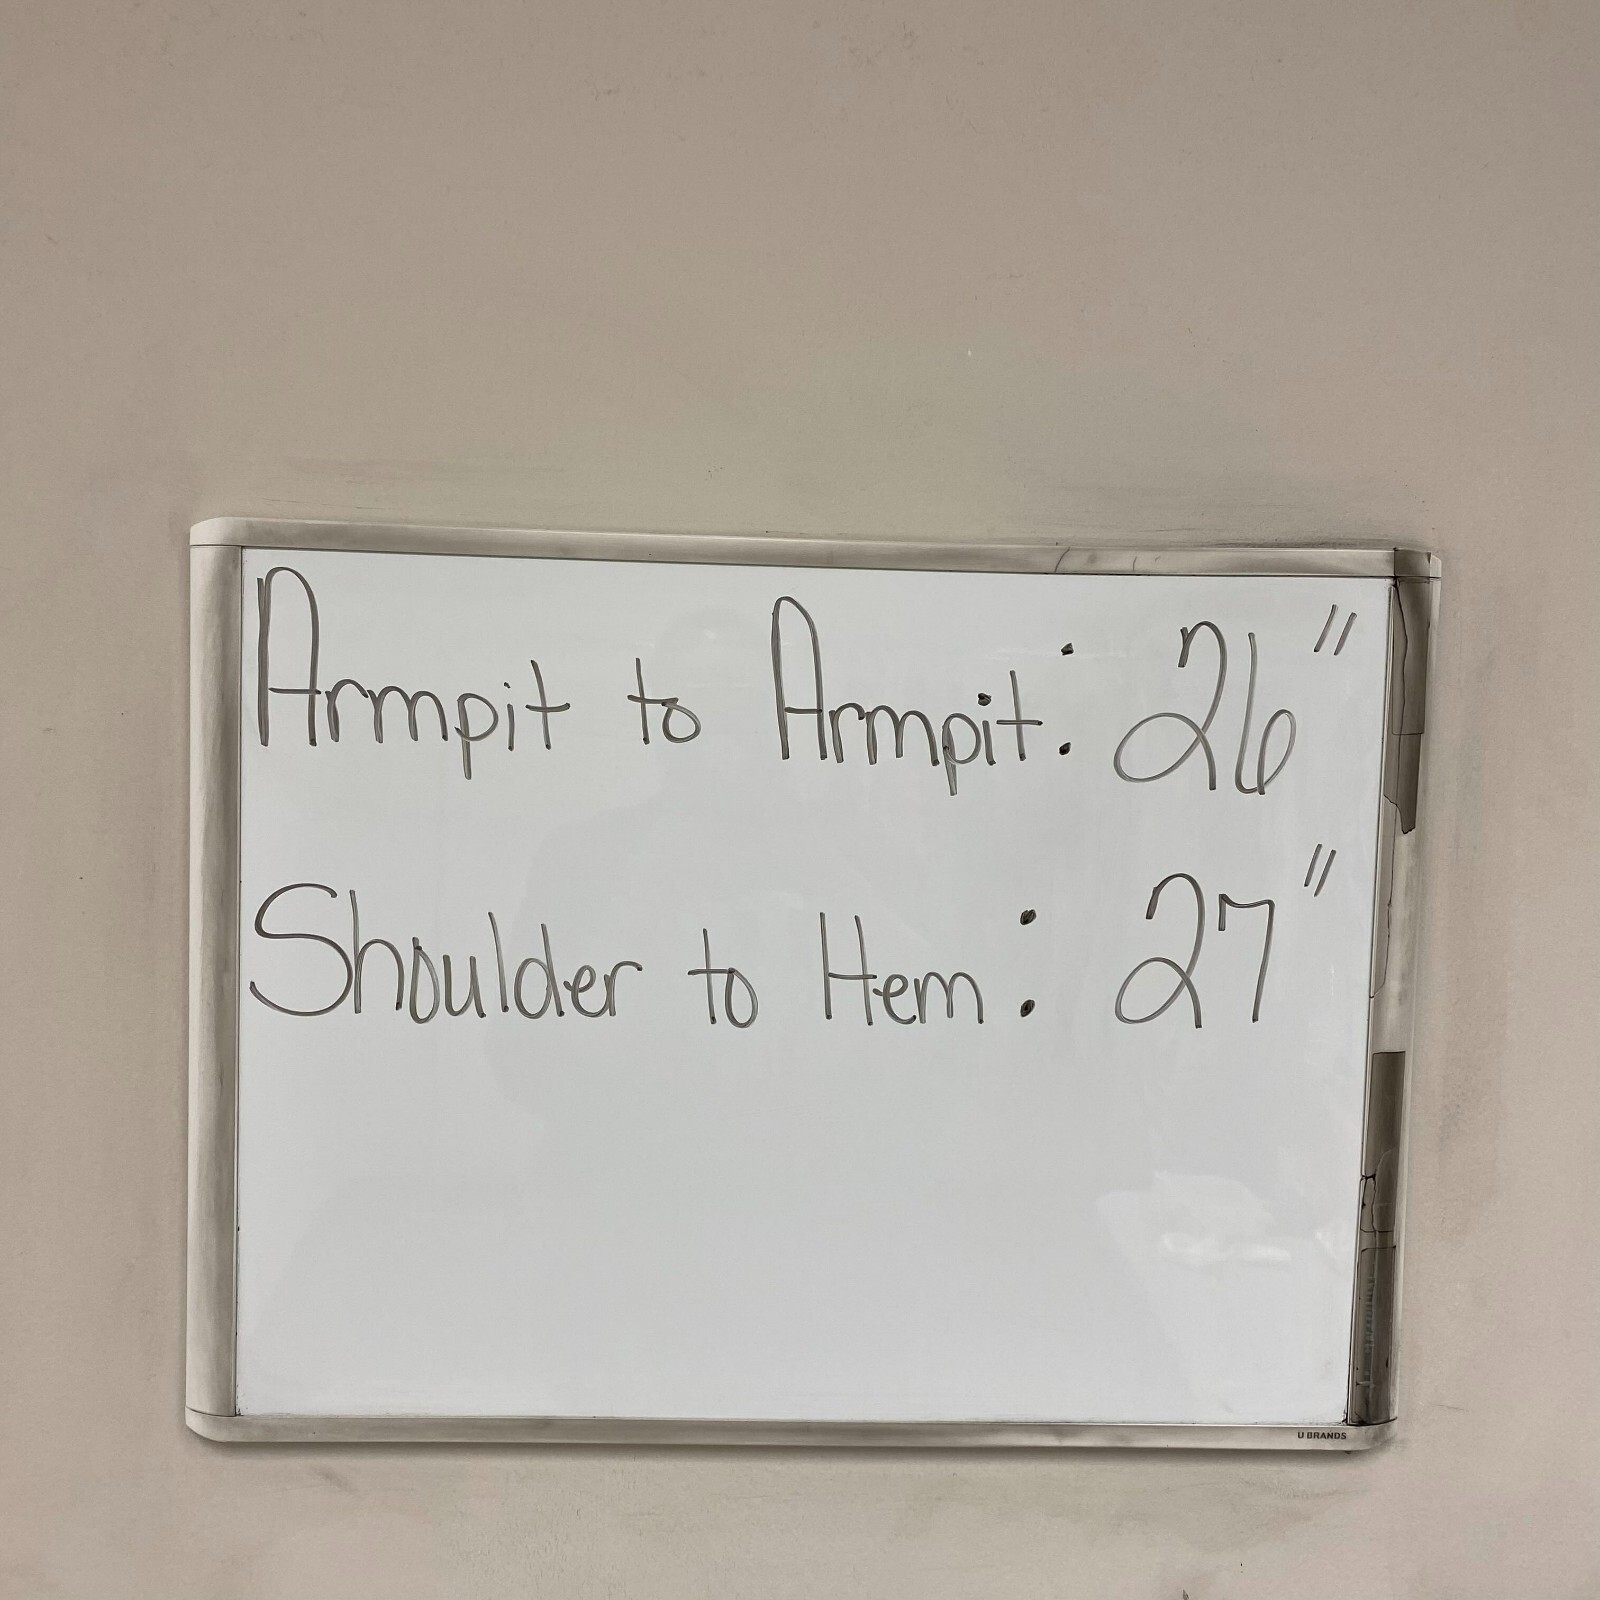 Armpit to Armpit: 26"
Shoulder to Hem: 27"
U BRANDS